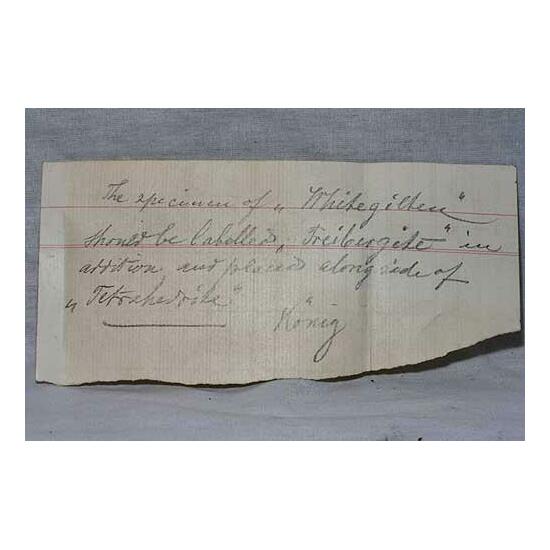 The specimen of „Whitegilten"
should be labelled „Freibergite" in
addition and placed alongside of
„Tetrahedrite"
König